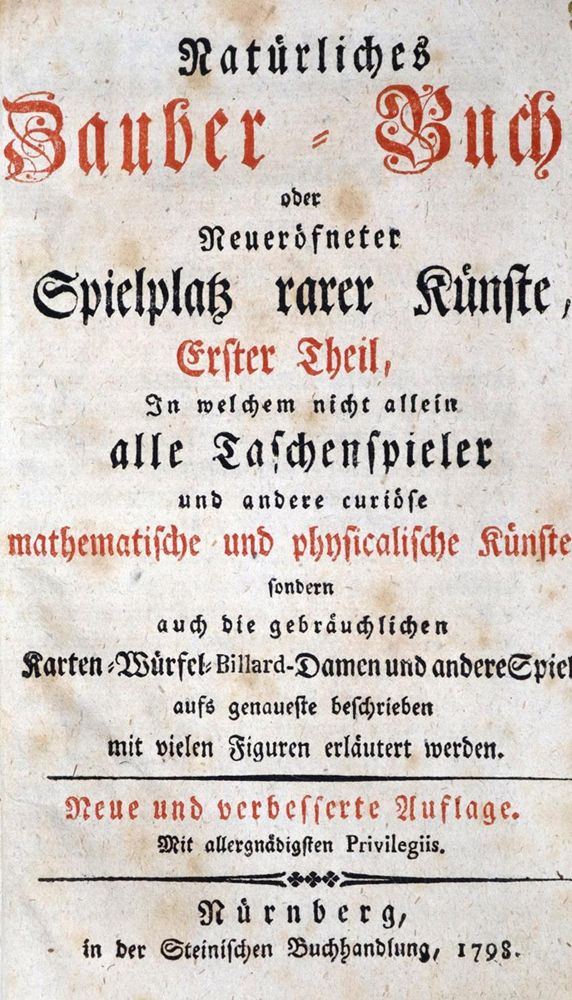 Natürliches
Zauber-Buch
oder
Neueröfneter
Spielplatz rarer Künste,
Erster Theil,
In welchem nicht allein
alle Taschenspieler
und andere curiöse
mathematische und physicalische Künste
sondern
auch die gebräuchlichen
Karten-Würfel-Billard-Damen und andere Spiel
aufs genaueste beschrieben
mit vielen Figuren erläutert werden.
Neue und verbesserte Auflage.
Mit allergnädigsten Privilegiis.
Nürnberg,
in der Steinischen Buchhandlung, 1798.